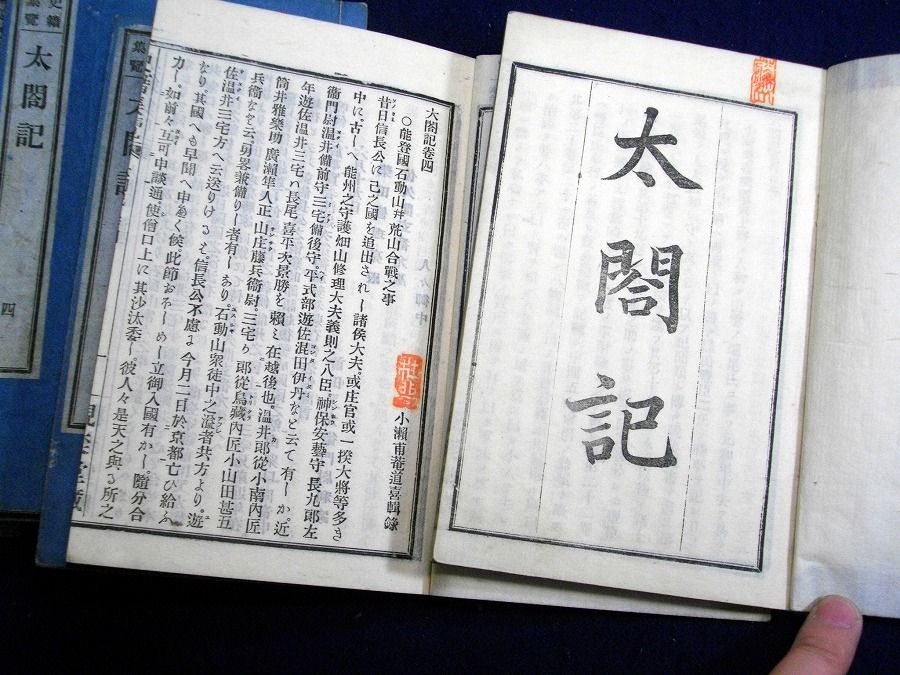 太閤記
太閤記卷四
小瀨甫菴道喜輯錄
○能登國石動山幷荒山合戰之事
昔日信長公に己之國を追出されー諸侯大夫。或庄官或一揆大將等多き
中に。古ーへ能州之守護畑山修理大夫義則之八臣。神保安藝守長九郎左
衞門尉温井備前守三宅備後守。平式部遊佐混田伊丹なと云て有ーか。近
年遊佐温井三宅ハ長尾喜平次景勝を賴ミ在越後也。温井郎從小南内匠
筒井雅樂助廣瀨隼人正山庄藤兵衞尉。三宅り郎從鳥藏内匠小山田甚五
兵衞なと云。勇畧兼備りー者有ーあり。石動山衆徒中之溢者共方より。遊
佐温井三宅方へ云送りけるも。信長公不慮よ今月二日於京都亡ひ給ふ
なり。其國へも早聞へ申へく候。此節おそーめー立御入國有かー。隨分合
力ー。如前々互可申談通。使僧口上に其沙汰悉ー。彼人々是天之與る所之
史籍
集覽
太閤記
四
集覽